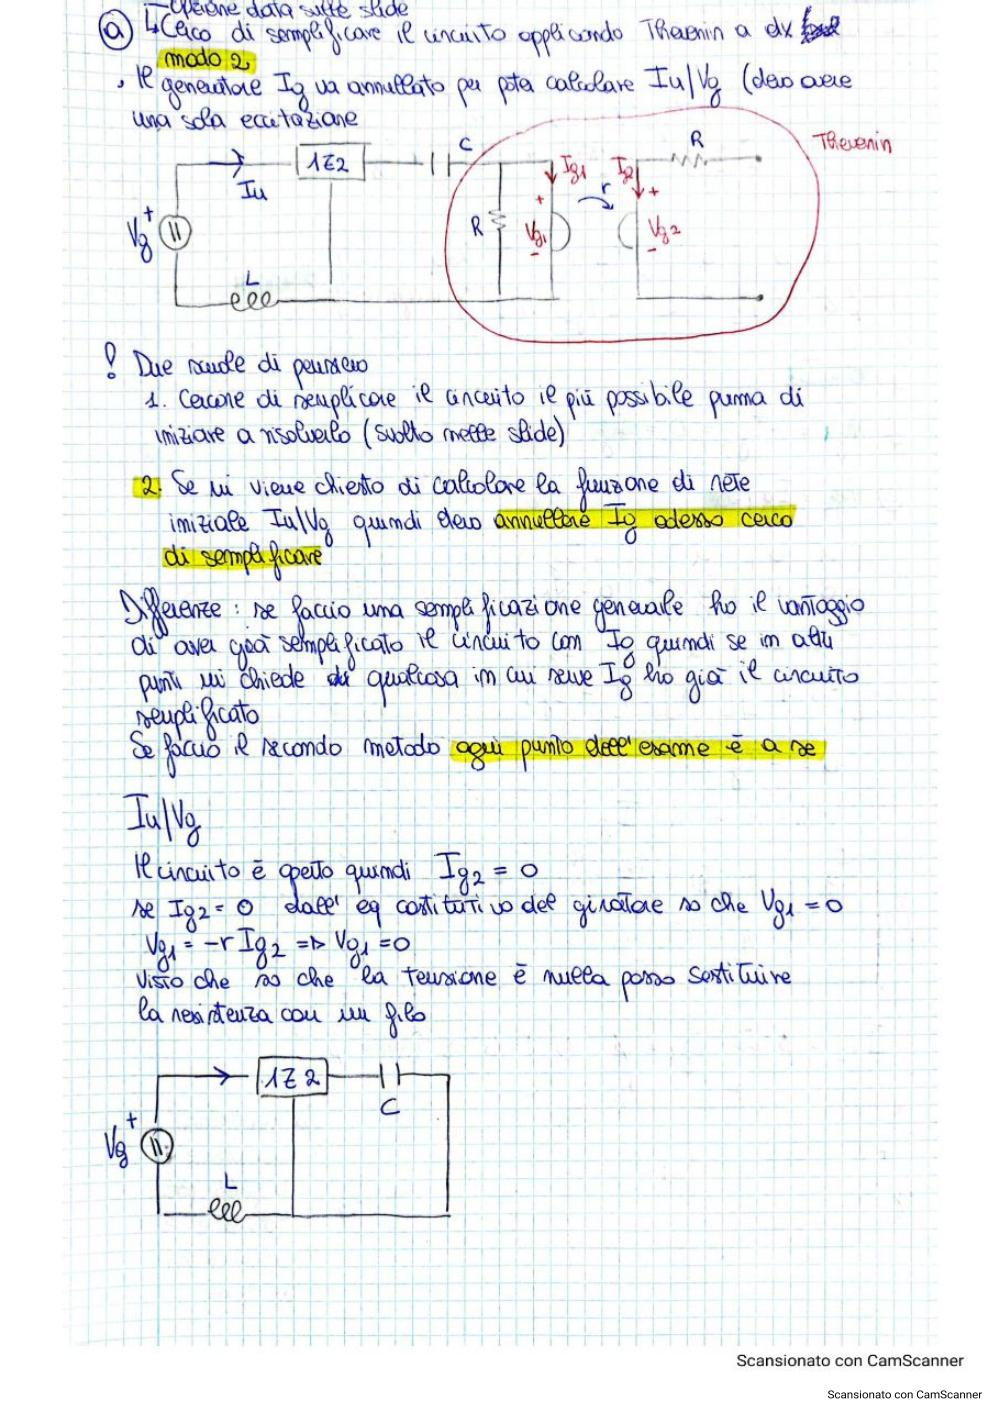 Opzione data sulle slide
a ↳ Cerco di semplificare il circuito applicando Thevenin a dx
modo 2
, Il generatore Ig va annullato per poter calcolare Iu/Vg (devo avere
una sola eccitazione
Iu
1Z2
C
R
Ig1
Ig2
r
R
Thevenin
Vg
+
R
+
Vg1
-
+
Vg2
-
L
! Due scuole di pensiero
1. Cercare di semplicare il circuito il più possibile prima di
iniziare a risolverlo (svolto nelle slide)
2. Se mi viene chiesto di calcolare la funzione di rete
iniziale Iu/Vg quindi devo annullare Ig adesso cerco
di semplificare
Differenze: se faccio una semplificazione generale ho il vantaggio
di aver già semplificato il circuito con Ig quindi se in altri
punti mi chiede di qualcosa in cui serve Ig ho già il circuito
semplificato
Se faccio il secondo metodo ogni punto dell'esame è a se
Iu/Vg
Il circuito è aperto quindi Ig2 = 0
se Ig2 = 0 dall' eq costitutivo del giratore so che Vg1 = 0
Vg1 = -r Ig2 => Vg1 = 0
Visto che so che la tensione è nulla posso sostituire
la resistenza con un filo
1Z2
C
Vg
+
L
Scansionato con CamScanner
Scansionato con CamScanner